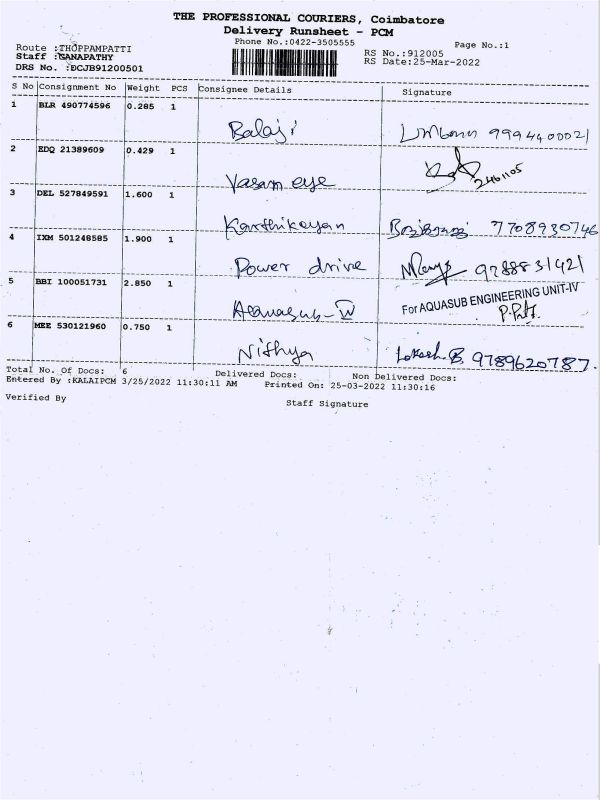 THE PROFESSIONAL COURIERS, Coimbatore
Delivery Runsheet - PCM
Phone No.:0422-3505555
Page No.:1
Route :THOPPAMPATTI
Staff :GANAPATHY
DRS No. :DCJB91200501
RS No.:912005
RS Date:25-Mar-2022
S No Consignment No Weight PCS Consignee Details Signature
1 BLR 490774596 0.285 1
Balaji 9994400021
2 EDQ 21389609 0.429 1
Vasan eye 2461105
3 DEL 527849591 1.600 1
Karthikeyan 7708930746
4 IXM 501248585 1.900 1
Power drive 9788831421
5 BBI 100051731 2.850 1
For AQUASUB ENGINEERING UNIT-IV
6 MEE 530121960 0.750 1
Nithya Lokesh.B 9789620787.
Total No. Of Docs: 6 Delivered Docs: Non Delivered Docs:
Entered By :KALAIPCM 3/25/2022 11:30:11 AM Printed On: 25-03-2022 11:30:16
Verified By
Staff Signature